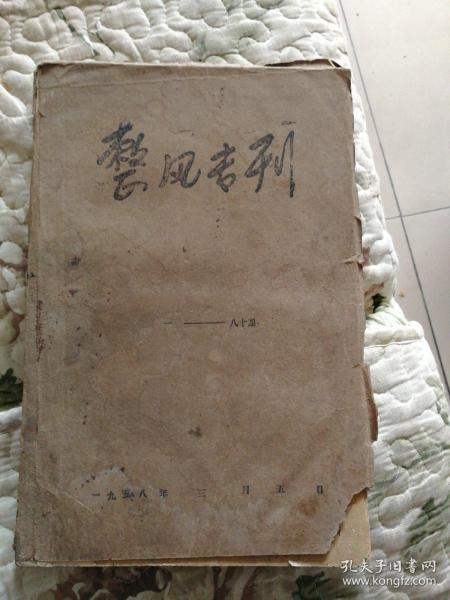 整风专刊
一 ——— 八十五
一九五八年 三 月 五 日
孔夫子旧书网
www.kongfz.com